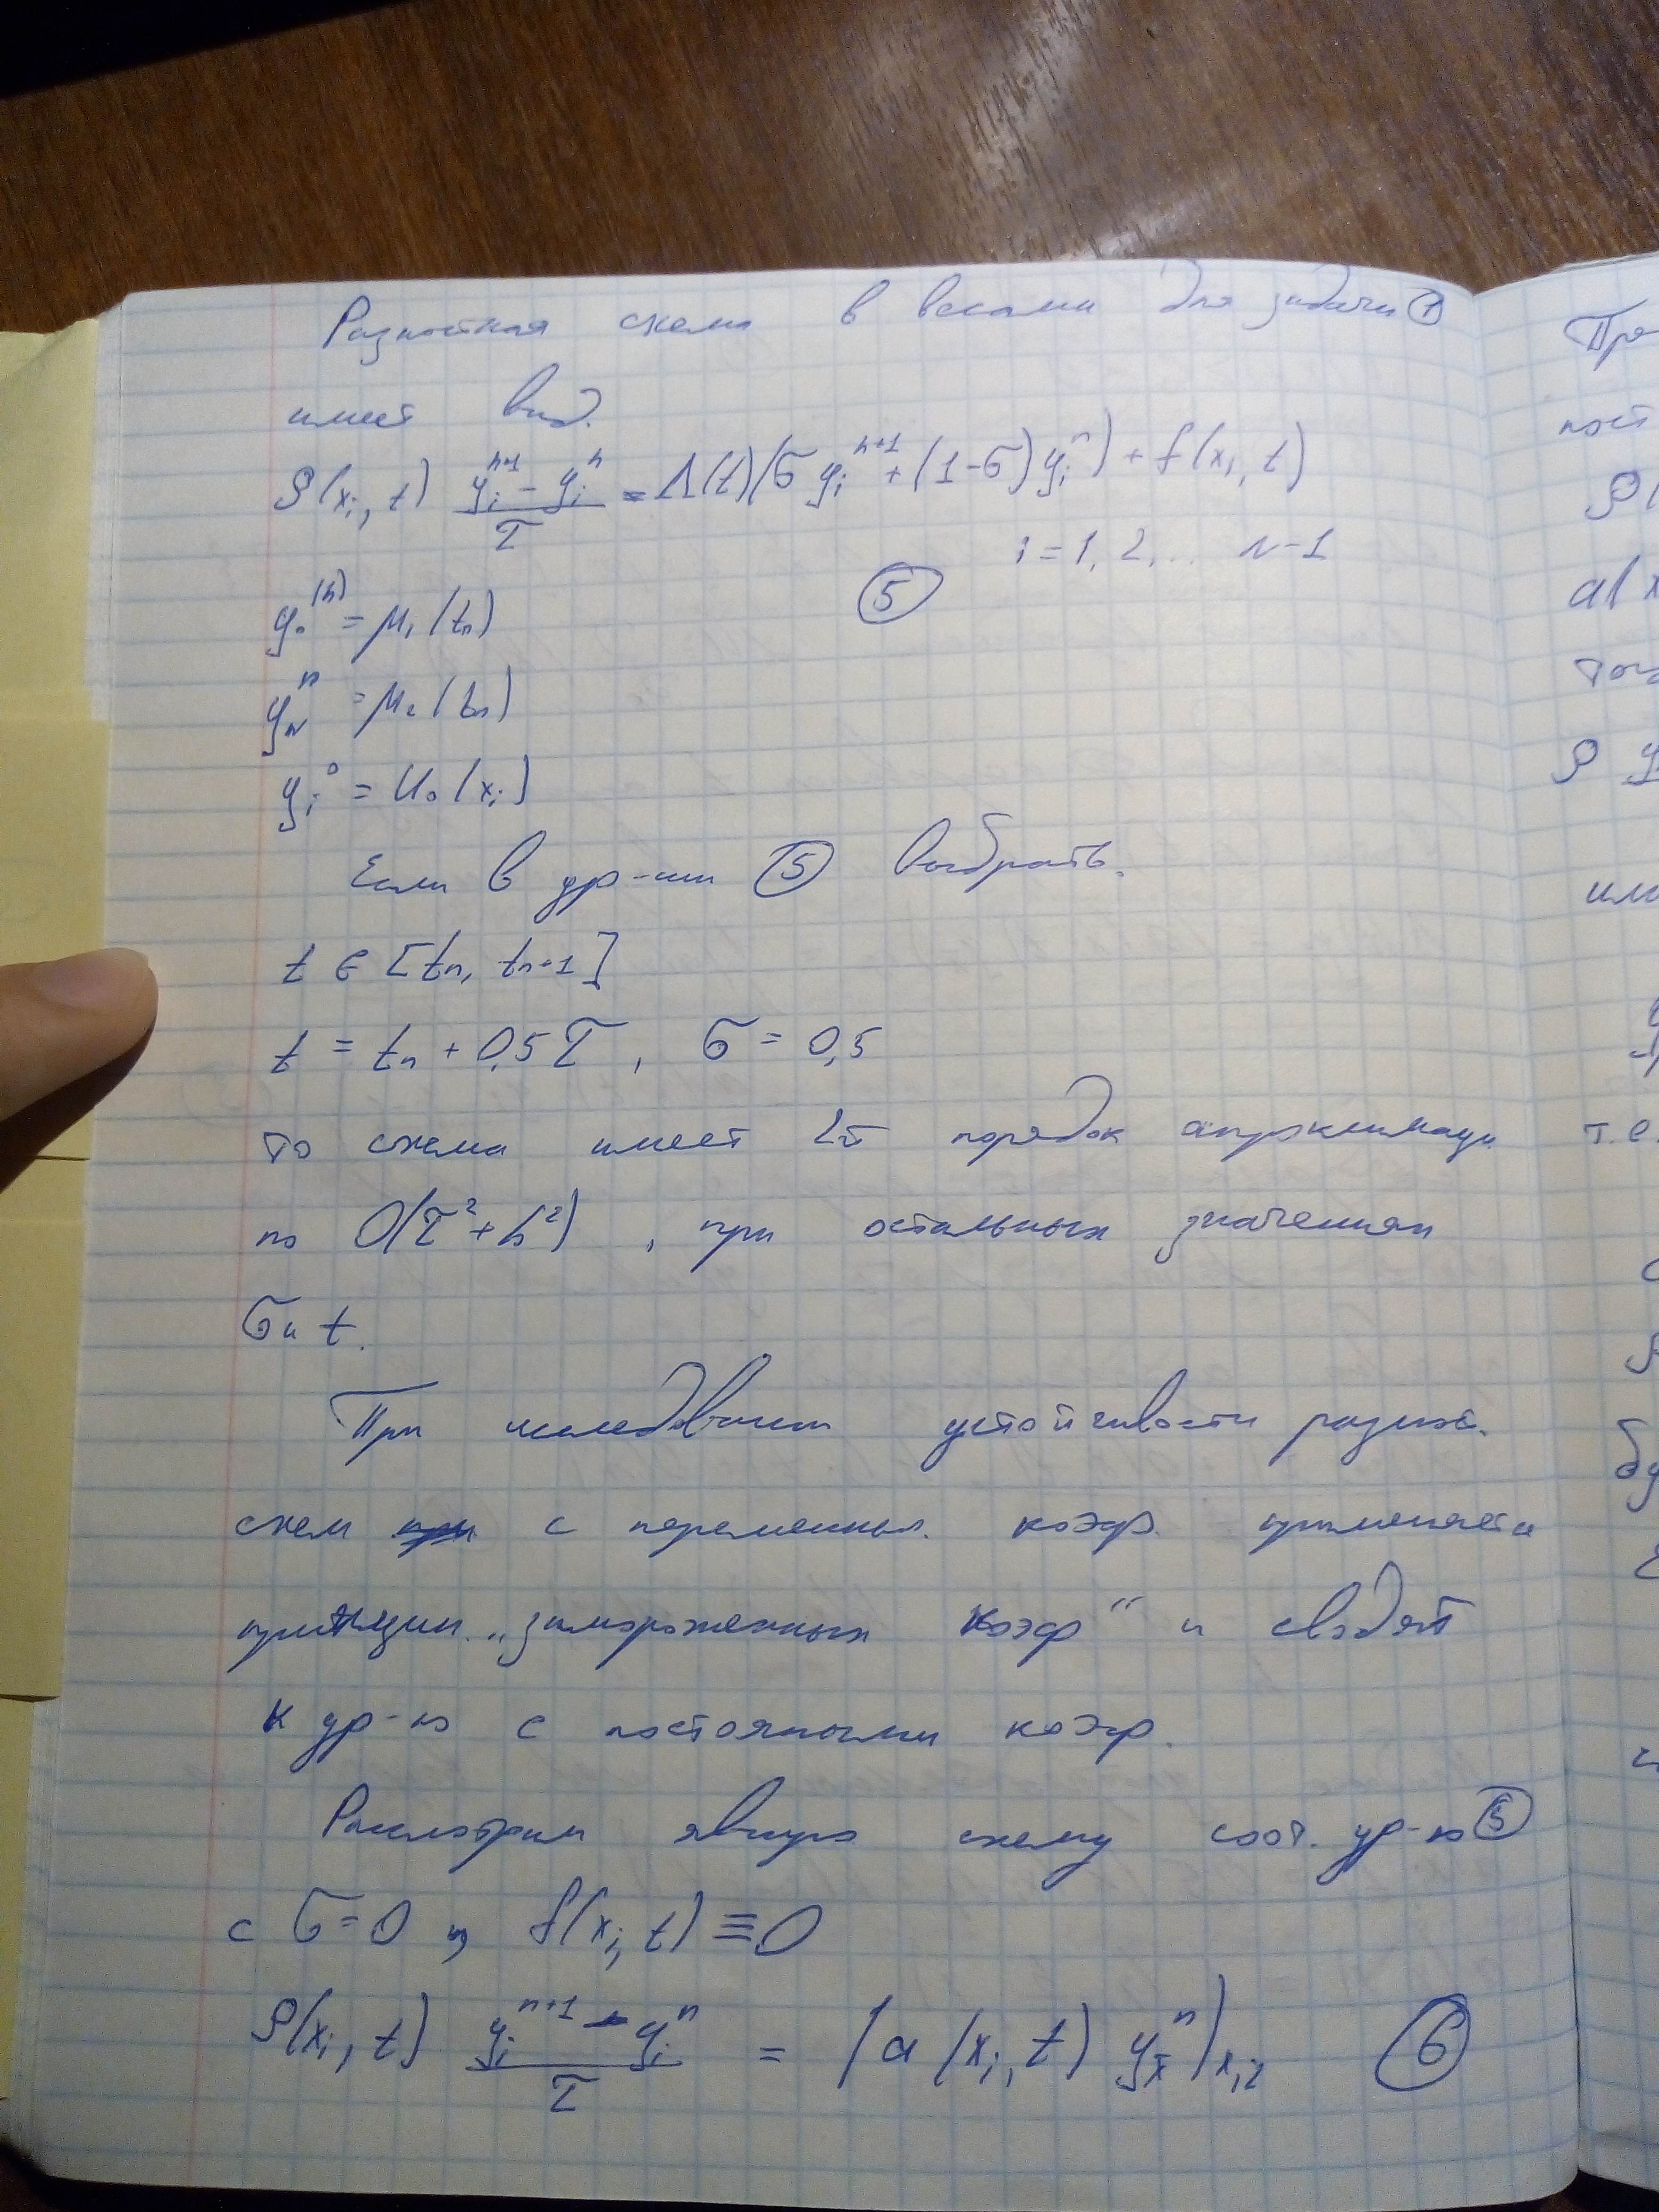 Разностная схема в весами для задачи ①
имеет вид.
ρ(xᵢ, t) (yᵢⁿ⁺¹ - yᵢⁿ)/τ = Λ(t)(σ yᵢⁿ⁺¹ + (1-σ) yᵢⁿ) + f(xᵢ, t)
i = 1, 2, ... N-1
⑤
y₀⁽ⁿ⁾ = μ₁(tₙ)
y_Nⁿ = μ₂(tₙ)
yᵢ⁰ = u₀(xᵢ)
Если в ур-нии ⑤ выбрать.
t ∈ [tₙ, tₙ₊₁]
t = tₙ + 0,5τ, σ = 0,5
то схема имеет 2й порядок
по O(τ² + h²), при остальных значениях
σ и t.
При устойчивости разност.
схем с переменных. коэф. применяется
принцип. „замороженных коэф“ и сводят
к ур-ю с постоянными коэф.
Рассмотрим явную схему соот. ур-ю ⑤
с σ = 0 и f(xᵢ, t) ≡ 0
ρ(xᵢ, t) (yᵢⁿ⁺¹ - yᵢⁿ)/τ = (a(xᵢ, t) y_x̄ⁿ)ₓ,ᵢ ⑥
Пр
пост
ρ(
a( x
ρ y
или
т.е.